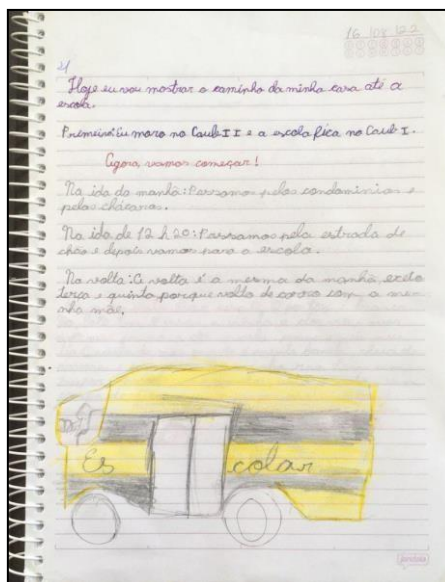 16 08 22
21
Hoje eu vou mostrar o caminho da minha casa até a
escola.
Primeiro: Eu moro no Caub II e a escola fica no Caub I.
Agora, vamos começar!
Na ida da manhã: Passamos pelos condominios e
pelas chácaras.
Na ida de 12 h 20: Passamos pela estrada de
chão e depois vamos para a escola.
Na volta: A volta é a mesma da manhã, exeto
terça e quinta porque volto de carro com a mi-
nha mãe.
Es colar